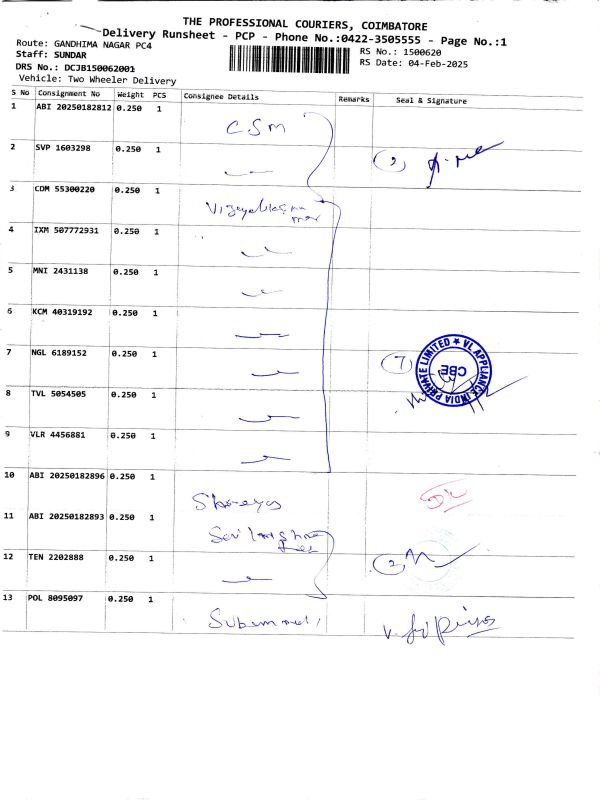 THE PROFESSIONAL COURIERS, COIMBATORE
Delivery Runsheet - PCP - Phone No.:0422-3505555 - Page No.:1
Route: GANDHIMA NAGAR PC4
RS No.: 1500620
Staff: SUNDAR
RS Date: 04-Feb-2025
DRS No.: DCJB150062001
Vehicle: Two Wheeler Delivery
S No Consignment No Weight PCS Consignee Details Remarks Seal & Signature
1 ABI 20250182812 0.250 1
CSM
2 SVP 1603298 0.250 1
(2)
3 CDM 55300220 0.250 1
4 IXM 507772931 0.250 1
5 MNI 2431138 0.250 1
6 KCM 40319192 0.250 1
7 NGL 6189152 0.250 1
(7)
VL APPLIANCE INDIA PRIVATE LIMITED ★
CBE
8 TVL 5054505 0.250 1
9 VLR 4456881 0.250 1
10 ABI 20250182896 0.250 1
Shreyas
11 ABI 20250182893 0.250 1
12 TEN 2202888 0.250 1
(2)
13 POL 8095097 0.250 1